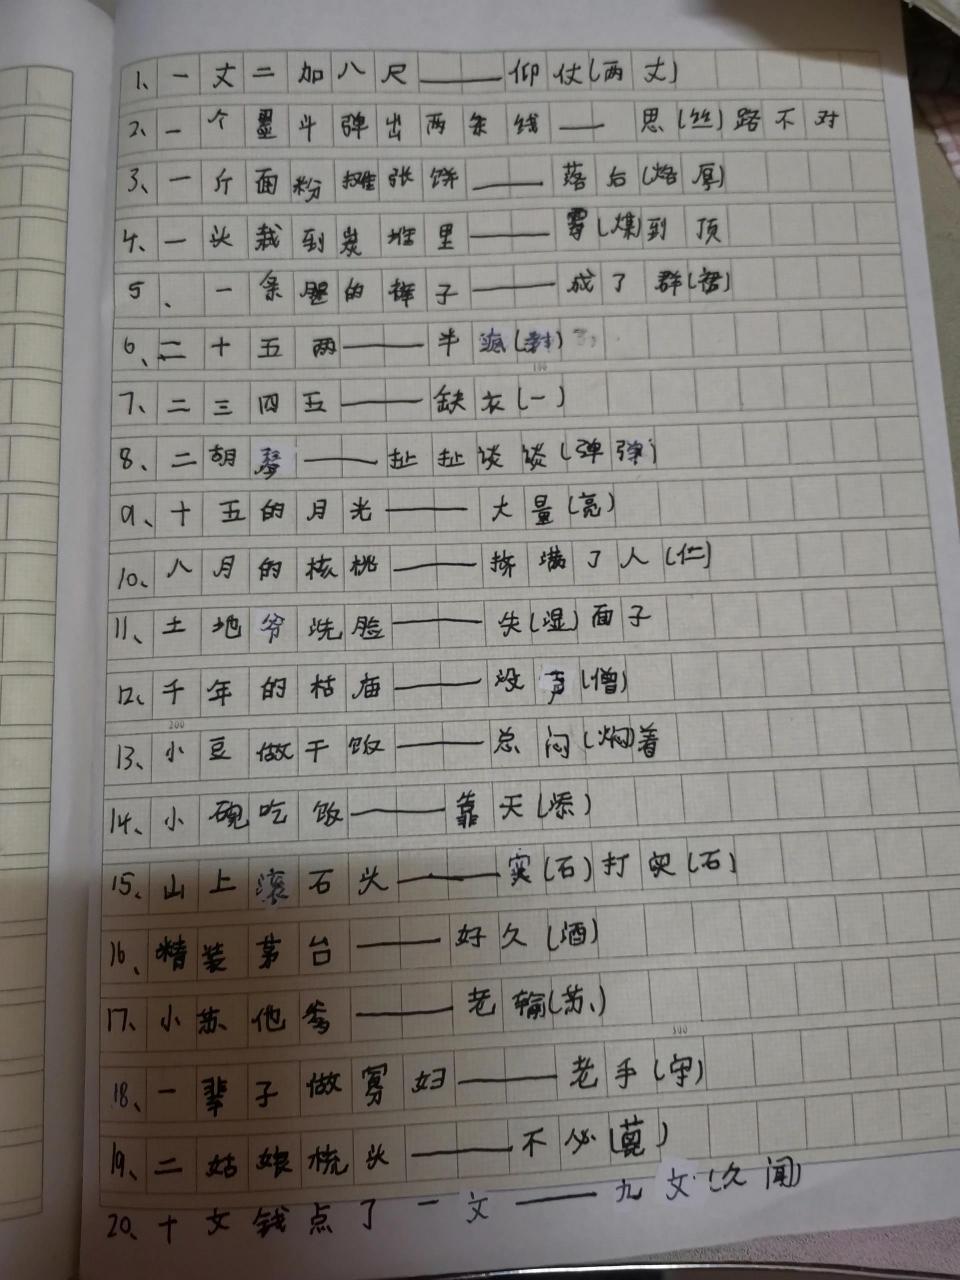 1、一丈二加八尺——仰仗(两丈)
2、一个墨斗弹出两条线——思(丝)路不对
3、一斤面粉摊张饼——落后(烙厚)
4、一头栽到炭堆里——霉(煤)到顶
5、一条腿的裤子——成了群(裙)
6、二十五两——半疯(封)
7、二三四五——缺衣(一)
8、二胡琴——扯扯谈谈(弹弹)
9、十五的月光——大量(亮)
10、八月的核桃——挤满了人(仁)
11、土地爷洗脸——失(湿)面子
12、千年的枯庙——没声(僧)
13、小豆做干饭——总闷(焖)着
14、小碗吃饭——靠天(添)
15、山上滚石头——实(石)打实(石)
16、精装茅台——好久(酒)
17、小苏他爹——老输(苏)
18、一辈子做寡妇——老手(守)
19、二姑娘梳头——不必(蓖)
20、十文钱点了一文——九文(久闻)